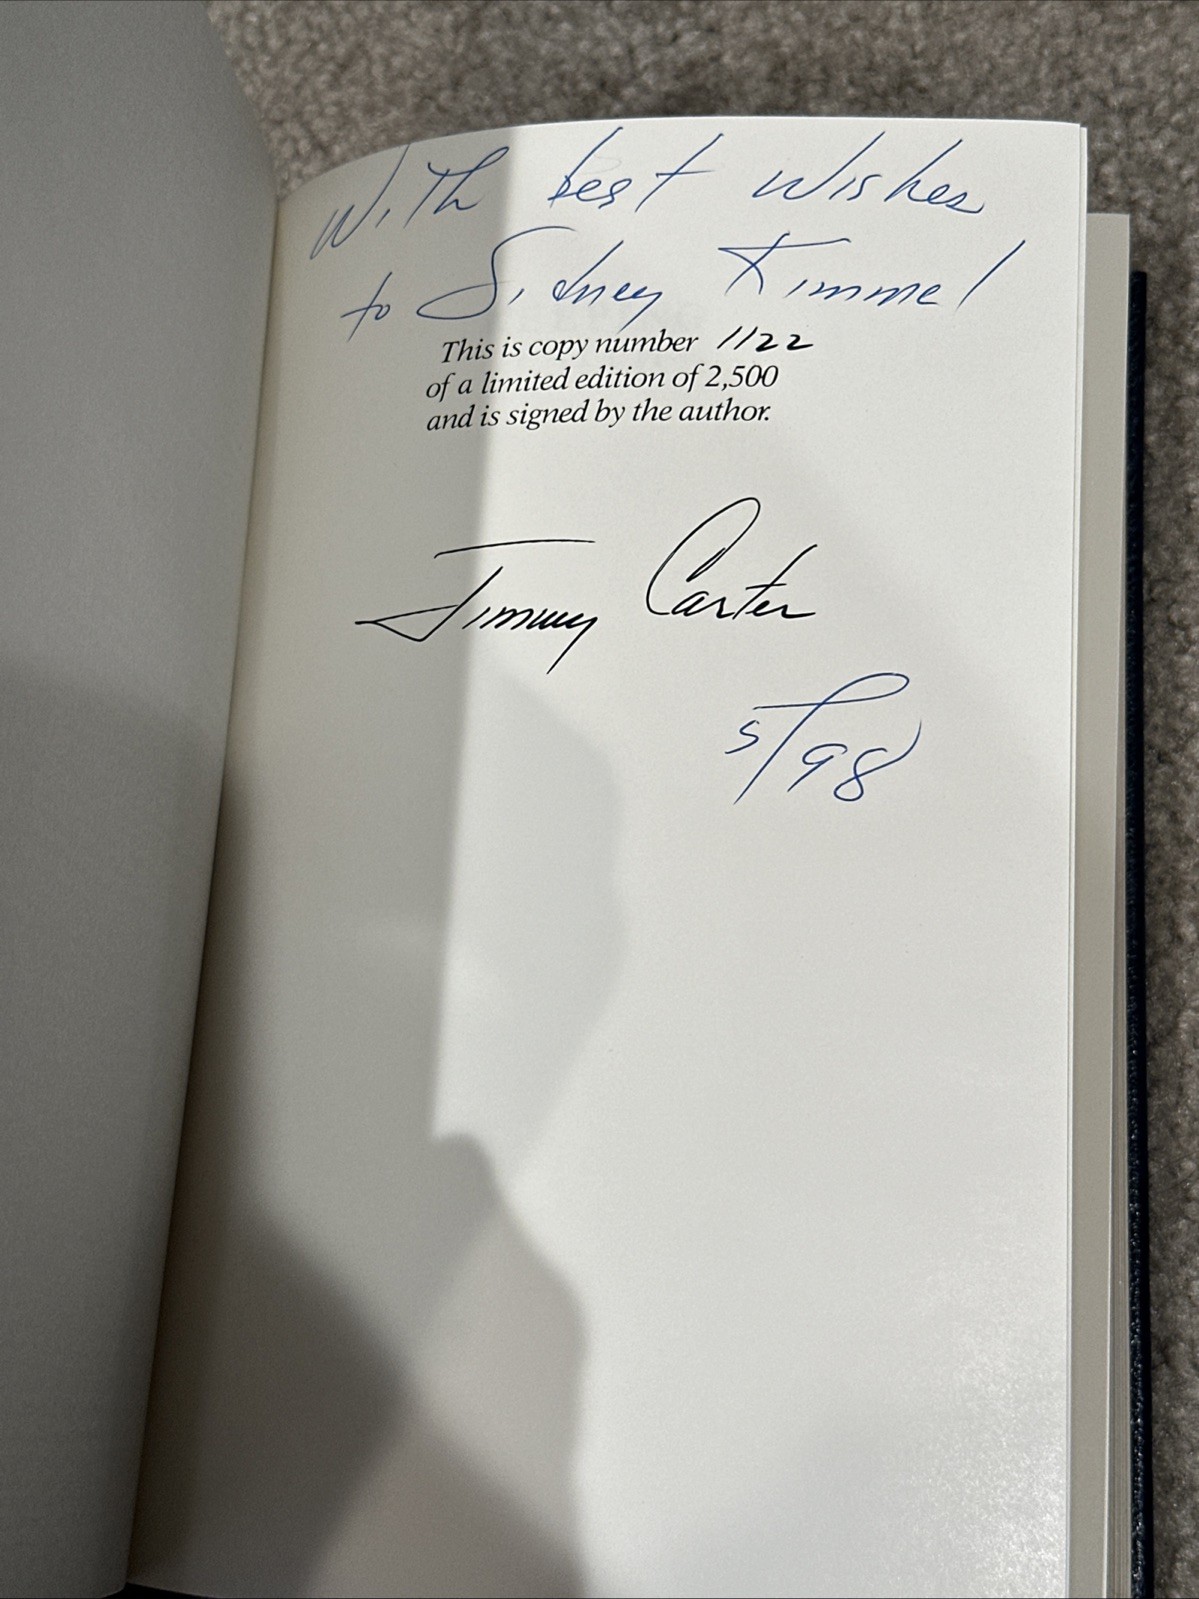 With best wishes
to Sidney Kimmel
This is copy number 1122
of a limited edition of 2,500
and is signed by the author.
Jimmy Carter
5/98